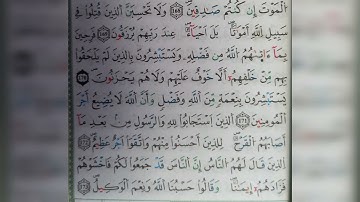 الْمَوْتَ إِن كُنتُمْ صَٰدِقِينَ ١٦٨ وَلَا تَحْسِبَنَّ الَّذِينَ قُتِلُوا۟ فِي
سَبِيلِ اللَّهِ أَمْوَٰتًا بَلْ أَحْيَآءٌ عِندَ رَبِّهِمْ يُرْزَقُونَ ١٦٩ فَرِحِينَ
بِمَآ ءَاتَىٰهُمُ اللَّهُ مِن فَضْلِهِ وَيَسْتَبْشِرُونَ بِالَّذِينَ لَمْ يَلْحَقُوا۟
بِهِم مِّنْ خَلْفِهِمُۥٓ أَلَّا خَوْفٌ عَلَيْهِمْ وَلَا هُمْ يَحْزَنُونَ ١٧٠
يَسْتَبْشِرُونَ بِنِعْمَةٍ مِّنَ اللَّهِ وَفَضْلٍ وَأَنَّ اللَّهَ لَا يُضِيعُ أَجْرَ
الْمُومِنِينَ ١٧١ الَّذِينَ اسْتَجَابُوا۟ لِلَّهِ وَالرَّسُولِ مِنۢ بَعْدِ مَآ
أَصَابَهُمُ الْقَرْحُ لِلَّذِينَ أَحْسَنُوا۟ مِنْهُمْ وَاتَّقَوَا۟ أَجْرٌ عَظِيمٌ ١٧٢
الَّذِينَ قَالَ لَهُمُ النَّاسُ إِنَّ النَّاسَ قَدْ جَمَعُوا۟ لَكُمْ فَاخْشَوْهُمْ
فَزَادَهُمُۥٓ إِيمَٰنًا وَقَالُوا۟ حَسْبُنَا اللَّهُ وَنِعْمَ الْوَكِيلُ ١٧٣